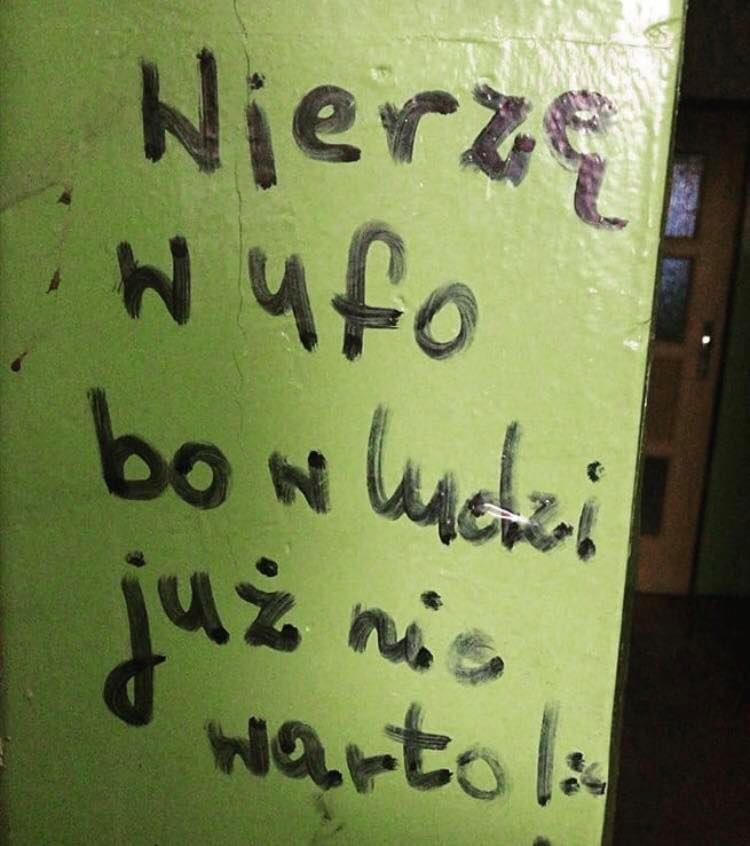 Wierzę
w ufo
bo w ludzi
już nie
warto